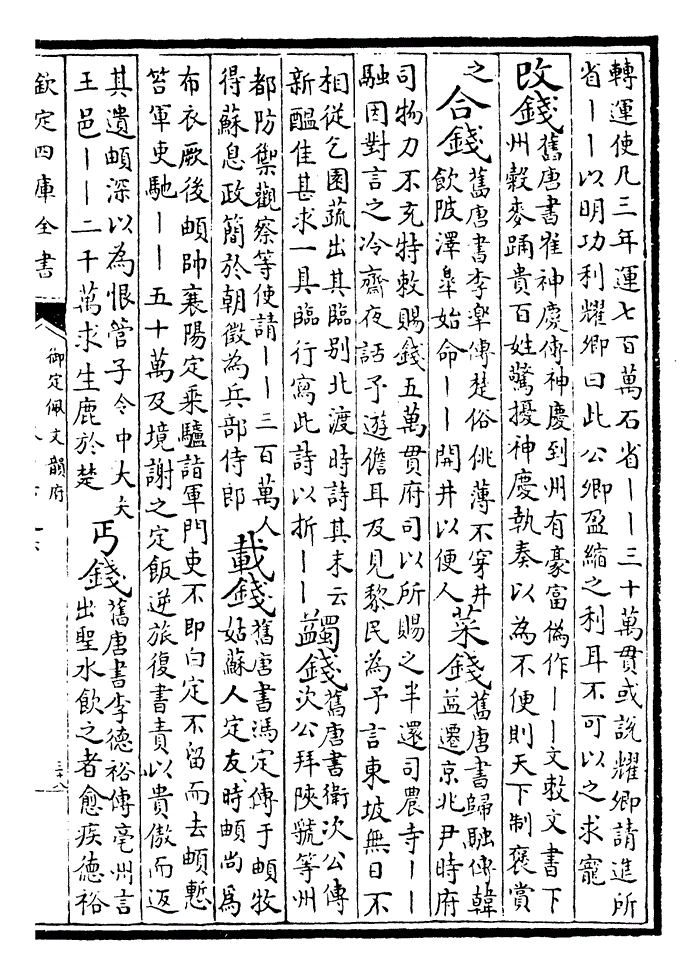 轉運使凡三年運七百萬石省丨丨三十萬貫或說耀卿請進所
省丨丨以明功利耀卿曰此公卿盈縮之利耳不可以之求寵
改錢
舊唐書崔神慶傳神慶到州有豪富偽作丨丨文敕文書下
州穀麥踊貴百姓驚擾神慶執奏以為不便則天下制褒賞
之
合錢
舊唐書李臯傳楚俗佻薄不穿井
飲陂澤臯始命丨丨開井以便人
菜錢
舊唐書歸融傳韓
益遷京兆尹時府
司物力不充特敕賜錢五萬貫府司以所賜之半還司農寺丨丨
融因對言之冷齋夜話予遊儋耳及見黎民為予言東坡無日不
相從乞園蔬出其臨別北渡時詩其末云
新醞佳甚求一具臨行寫此詩以折丨丨
蠲錢
舊唐書衛次公傳
次公拜陝虢等州
都防禦觀察等使請丨丨三百萬人
得蘇息政簡於朝徵為兵部侍郎
載錢
舊唐書馮定傳于頔牧
姑蘇人定友時頔尚為
布衣厥後頔帥襄陽定乘驢詣軍門吏不即白定不留而去頔慙
笞軍吏馳丨丨五十萬及境謝之定飯逆旅復書責以貴傲而返
其遺頔深以為恨管子令中大夫
王邑丨丨二千萬求生鹿於楚
丐錢
舊唐書李德裕傳亳州言
出聖水飲之者愈疾德裕
欽定四庫全書
御定佩文韻府